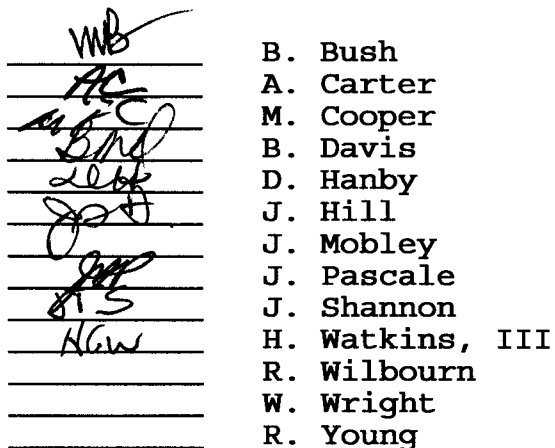 MB B. Bush
AC A. Carter
MKC M. Cooper
BMD B. Davis
D. Hanby
J. Hill
J. Mobley
JMP J. Pascale
JTS J. Shannon
HGW H. Watkins, III
R. Wilbourn
W. Wright
R. Young